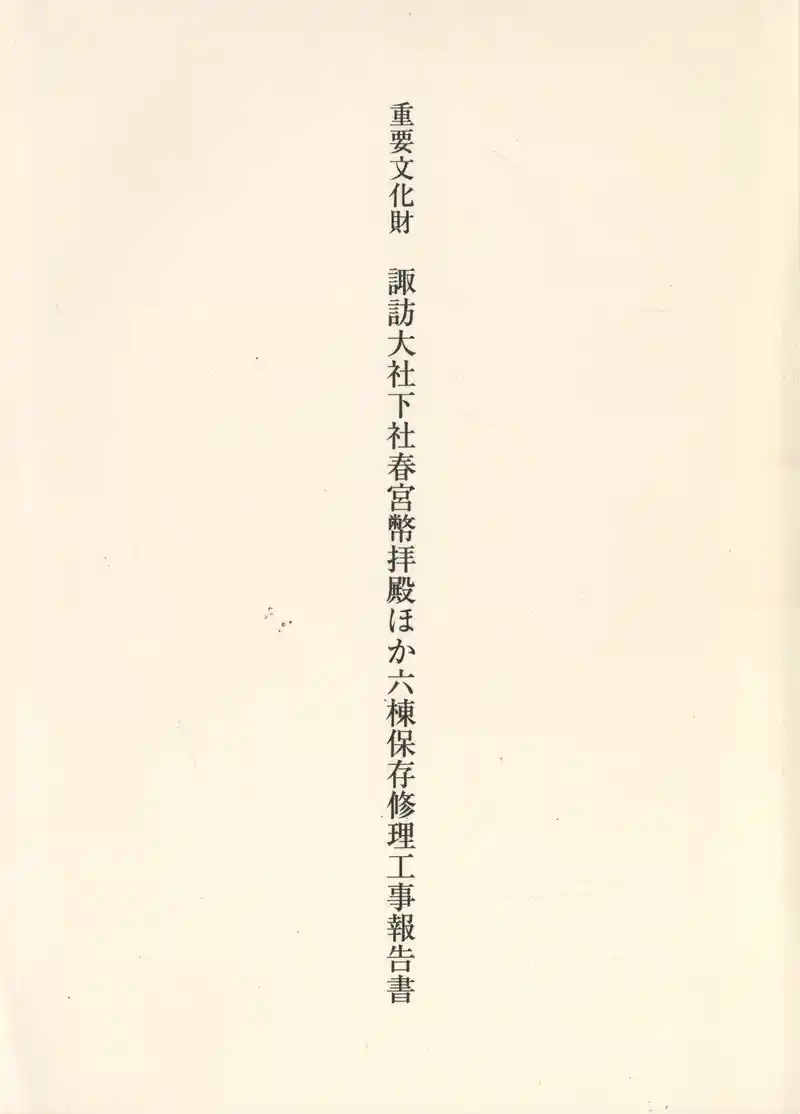 重要文化財　諏訪大社下社春宮幣拝殿ほか六棟保存修理工事報告書